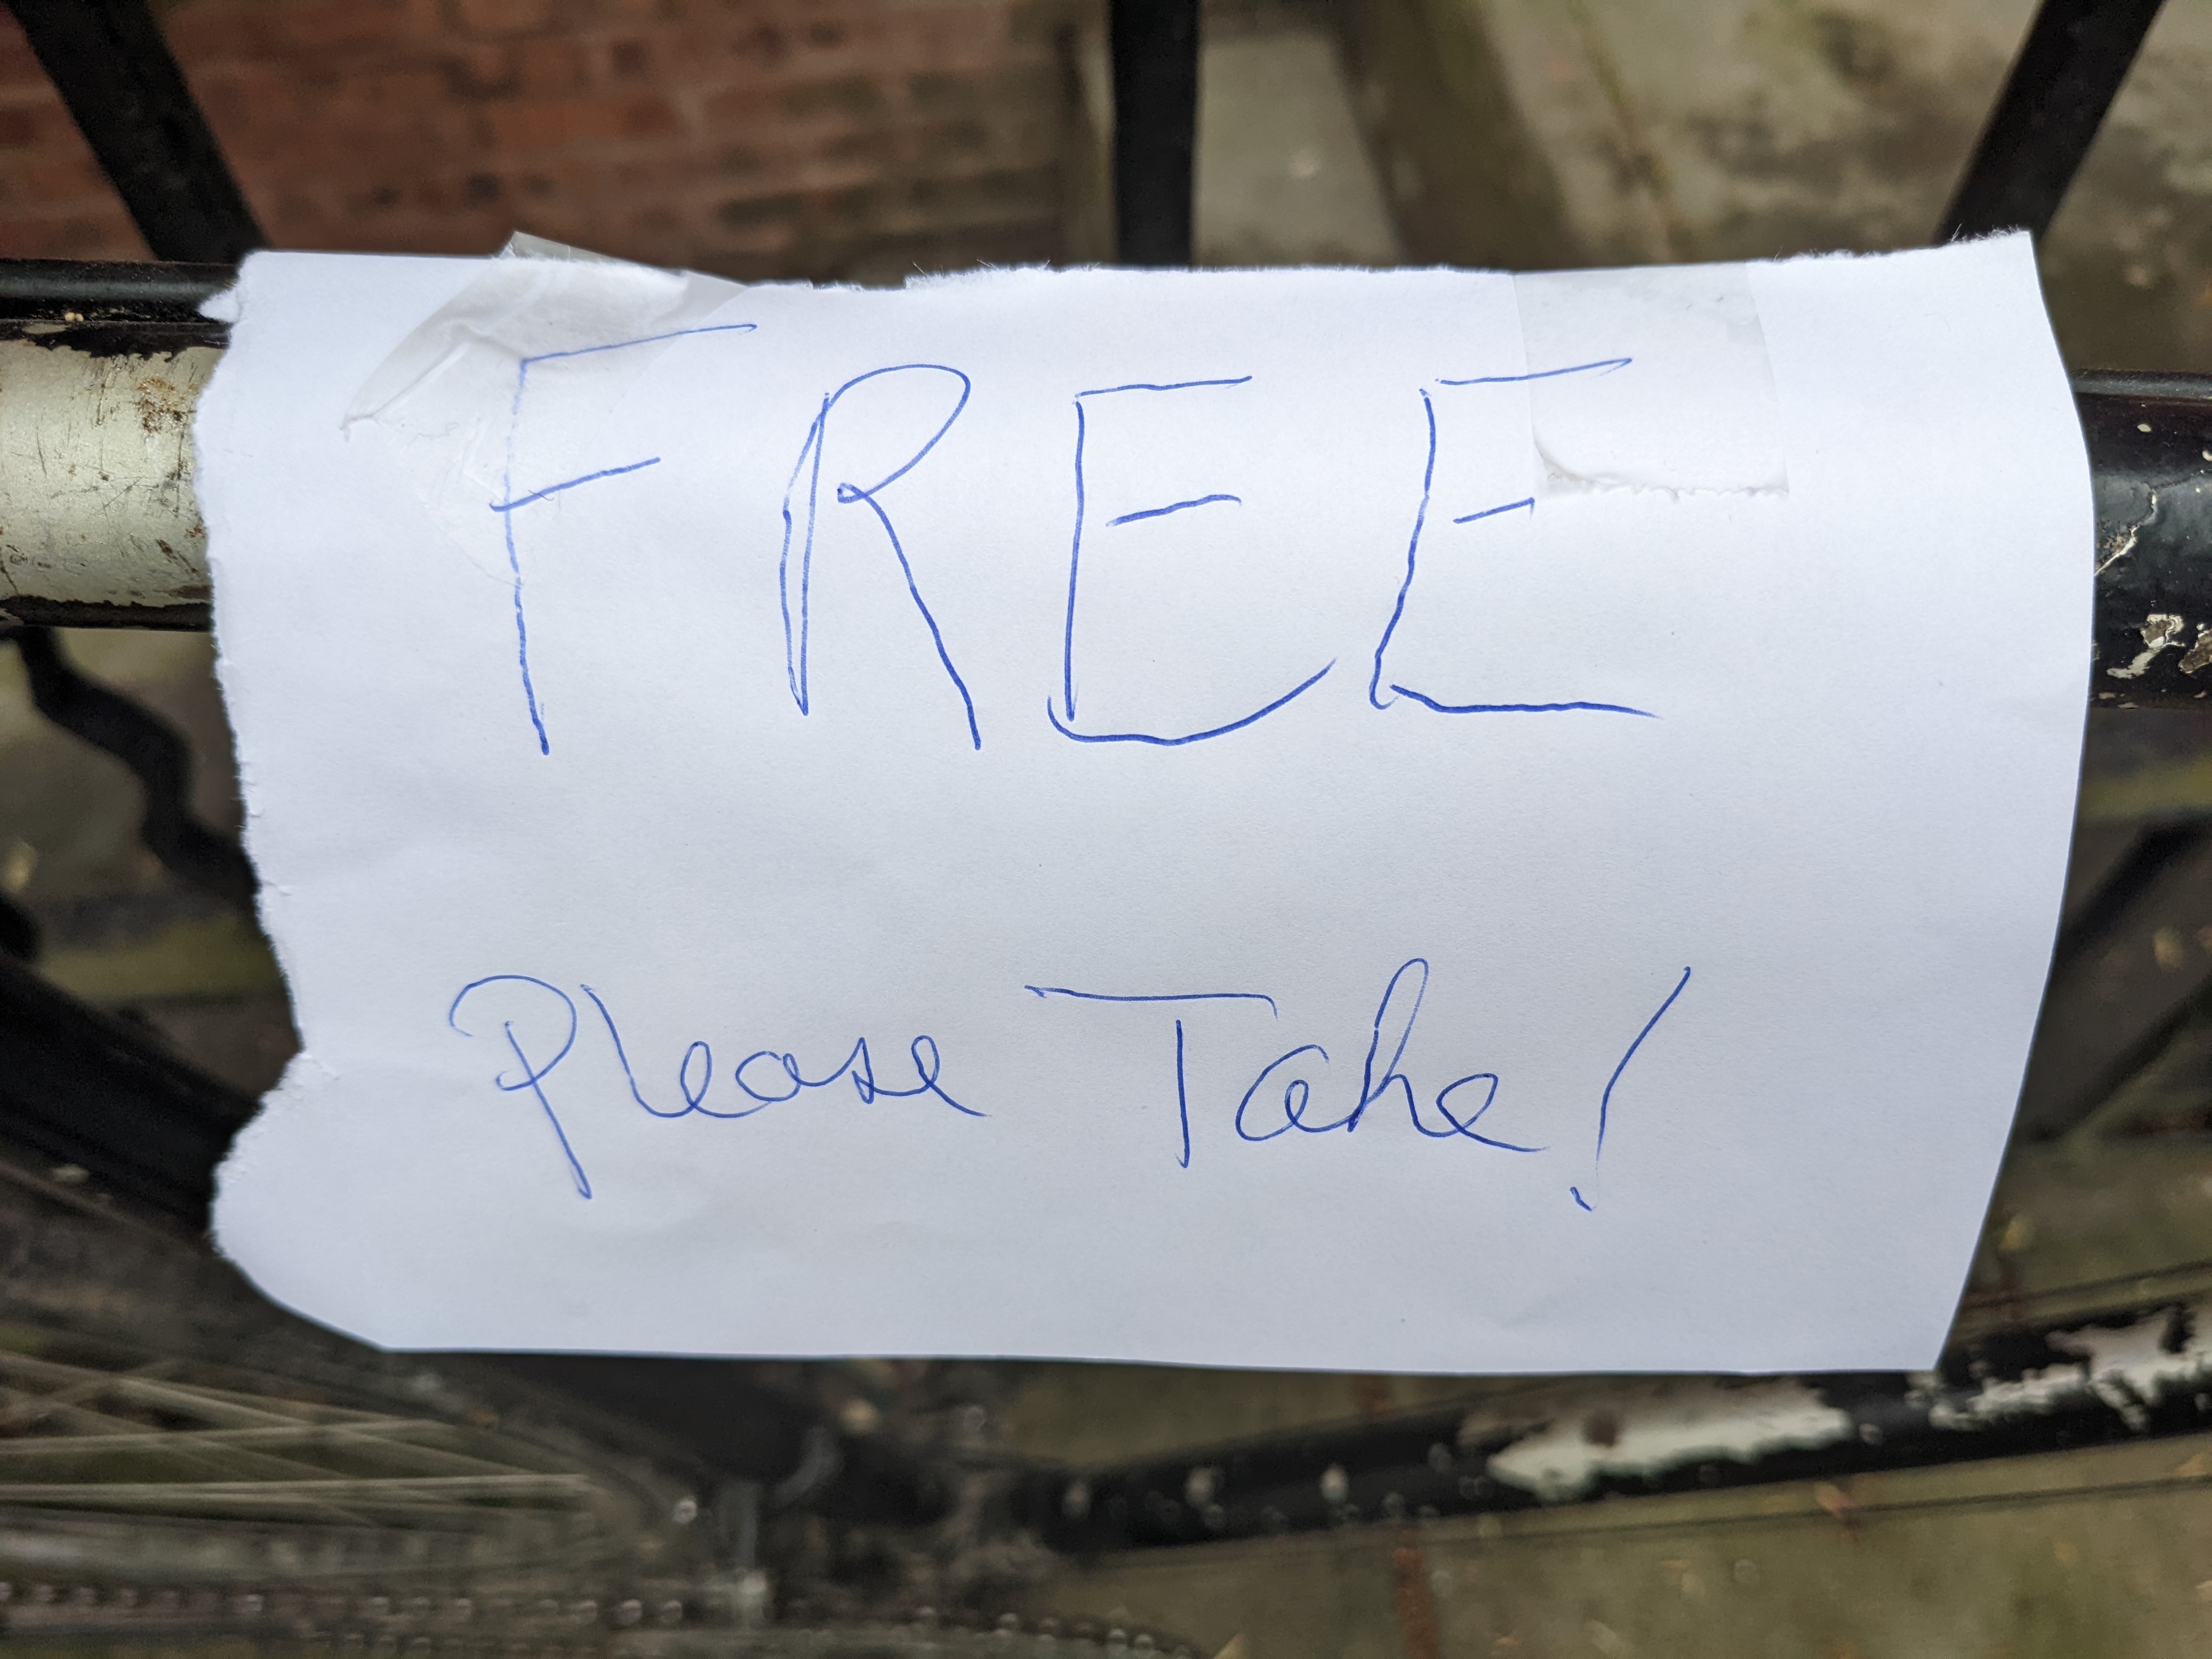 FREE
Please Take!